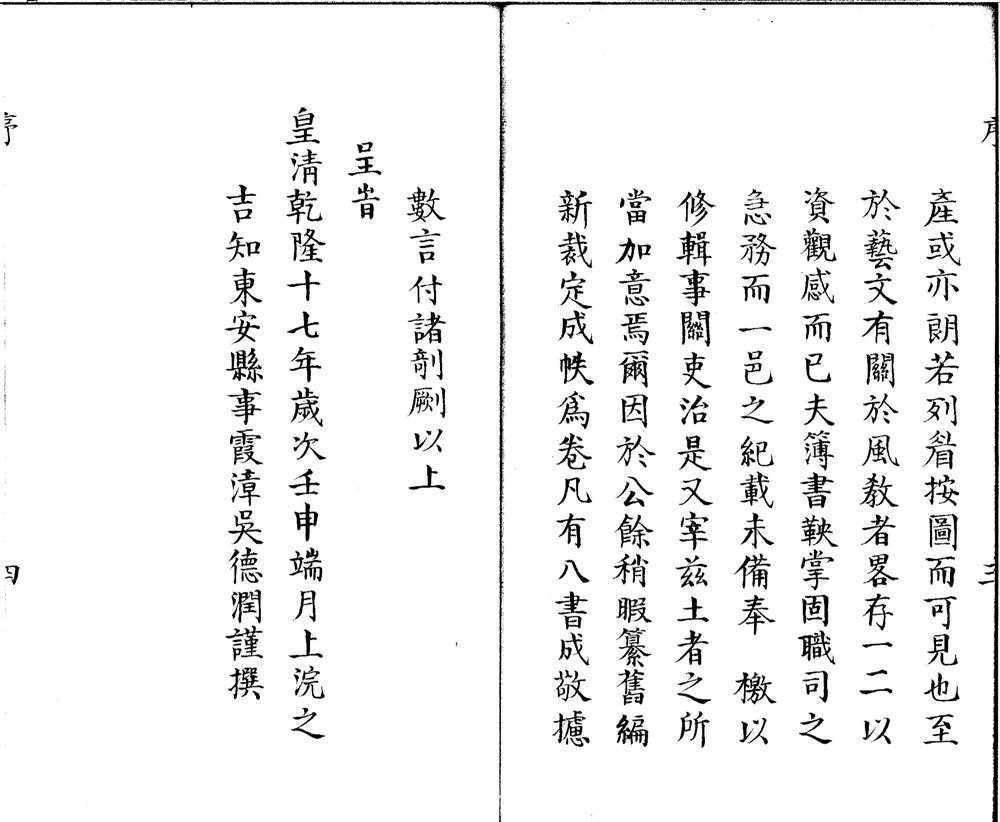 序
產或亦朗若列眉按圖而可見也至
於藝文有關於風教者畧存一二以
資觀感而已夫簿書鞅掌固職司之
急務而一邑之紀載未備奉　檄以
修輯事關吏治是又宰兹土者之所
當加意焉爾因於公餘稍暇纂舊編
新裁定成帙爲卷凡有八書成敬攄
三
數言付諸剞劂以上
呈旹
皇清乾隆十七年歲次壬申端月上浣之
吉知東安縣事霞漳吳德潤謹撰
序
四